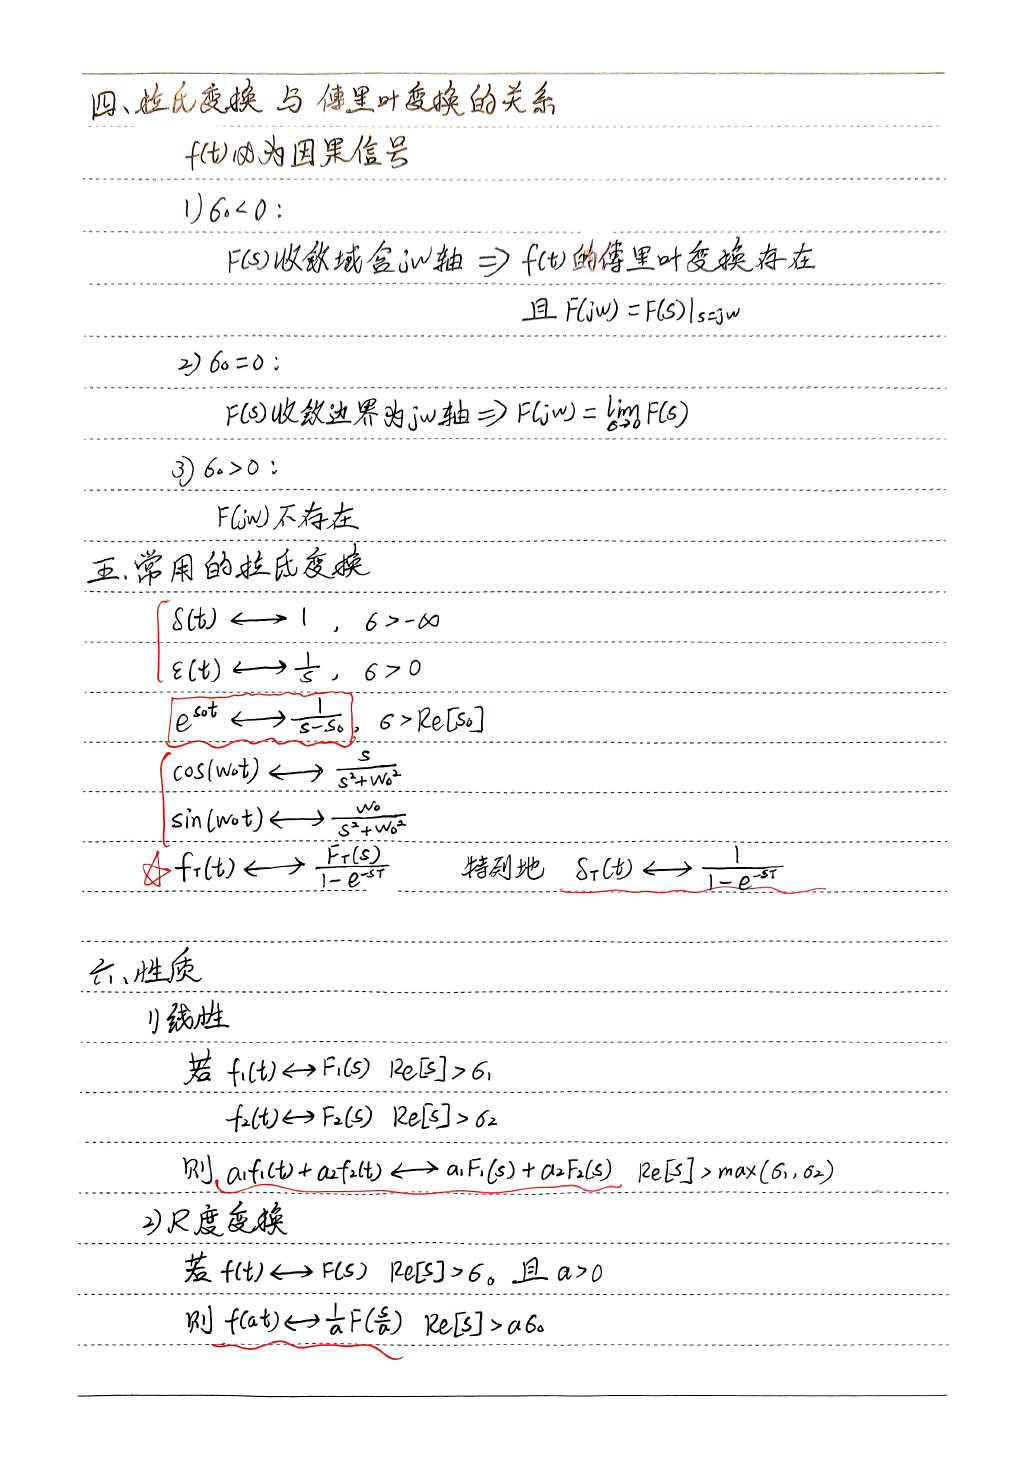 四、拉氏变换与傅里叶变换的关系
f(t)必为因果信号
1) σ₀<0:
F(s)收敛域含jw轴 ⇒ f(t)的傅里叶变换存在
且 F(jw)=F(s)|s=jw
2) σ₀=0:
F(s)收敛边界为jw轴 ⇒ F(jw)=lim σ→0 F(s)
3) σ₀>0:
F(jw)不存在
五.常用的拉氏变换
δ(t) ⟷ 1 , σ>-∞
ε(t) ⟷ 1/s , σ>0
e^{s₀t} ⟷ 1/(s-s₀) , σ>Re[s₀]
cos(w₀t) ⟷ s/(s²+w₀²)
sin(w₀t) ⟷ w₀/(s²+w₀²)
☆ f_T(t) ⟷ F_T(s)/(1-e^{-sT}) 特别地 δ_T(t) ⟷ 1/(1-e^{-sT})
六、性质
1) 线性
若 f₁(t) ⟷ F₁(s) Re[s]>σ₁
f₂(t) ⟷ F₂(s) Re[s]>σ₂
则, a₁f₁(t)+a₂f₂(t) ⟷ a₁F₁(s)+a₂F₂(s) Re[s]>max(σ₁,σ₂)
2) 尺度变换
若 f(t) ⟷ F(s) Re[s]>σ₀ 且 a>0
则 f(at) ⟷ 1/a F(s/a) Re[s]>aσ₀